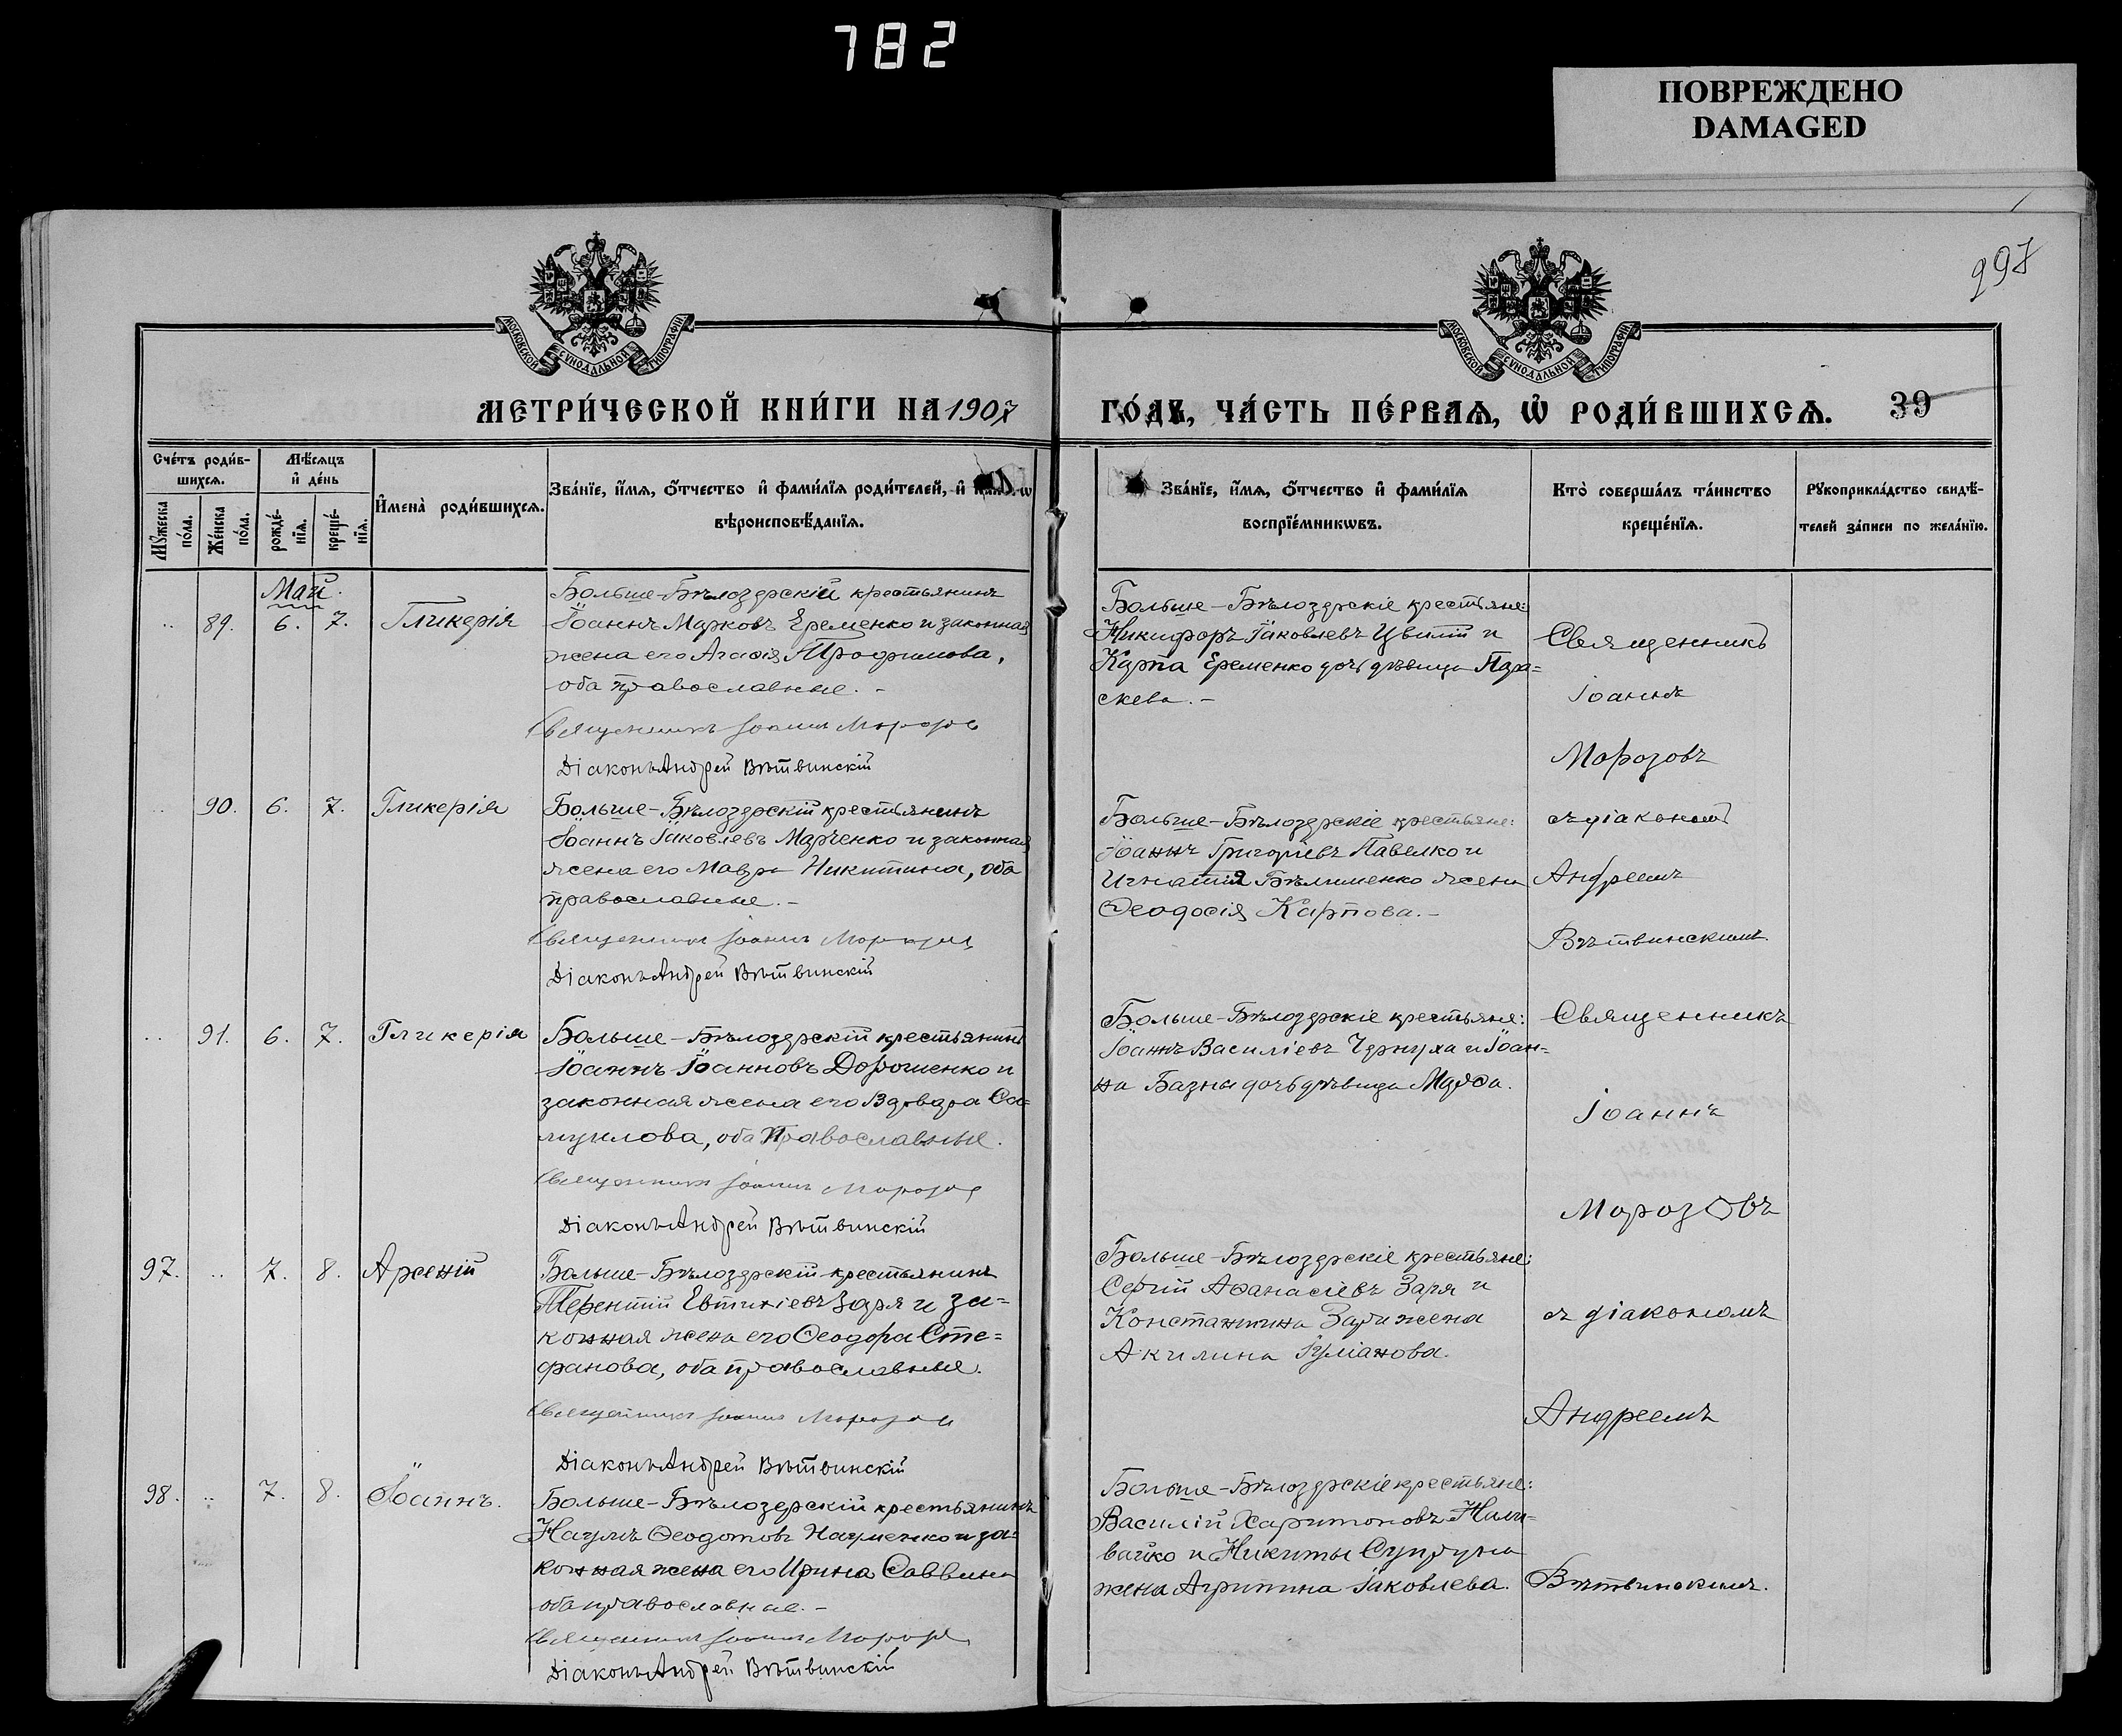 782
ПОВРЕЖДЕНО
DAMAGED
997
МОСКОВСКОЙ СѴНОДАЛЬНОЙ ТИПОГРАФІИ
МОСКОВСКОЙ СѴНОДАЛЬНОЙ ТИПОГРАФІИ
МЕТРИ́ЧЕСКОЙ КНИ́ГИ НА 1907
ГО́ДЪ, ЧА́СТЬ ПЕ́РВАѦ, Ѡ҆ РОДИ́ВШИХСѦ. 39
Сче́тъ роди́в-
шихсѧ.
Мѣ́сѧцъ
и҆ де́нь
Мꙋ́жеска по́ла.
Же́нска по́ла.
рожде́-нїѧ.
креще́-нїѧ.
И҆мена̀ роди́вшихсѧ.
Зва́нїе, и҆́мѧ, ѻ҆́тчество и҆ фами́лїѧ роди́телей, и҆
вѣроисповѣ́данїѧ.
Зва́нїе, и҆́мѧ, ѻ҆́тчество и҆ фами́лїѧ
воспрїе́мникѡвъ.
Кто̀ соверша́лъ та́инство
креще́нїѧ.
Рꙋкоприкла́дство свидѣ́-
телей за́писи по жела́нїю.
Май.
89. 6. 7. Гликерія
Больше-Бѣлозерскій крестьянинъ
Іоаннъ Марковъ Еременко и законная
жена его Агафія Трофимова,
оба православные.-
Священникъ Іоаннъ Морозов
Діаконъ Андрей Вѣтвинскій
Больше-Бѣлозерскіе крестьяне:
Никифоръ Іаковлевъ Цвилій и
Карпа Еременко дочь дѣвица Пара=
скева.-
Священникъ
Іоаннъ
Морозовъ
90. 6. 7. Гликерія
Больше-Бѣлозерскій крестьянинъ
Іоаннъ Іаковлевъ Марченко и законная
жена его Мавра Никитина, оба
православные.-
Священникъ Іоаннъ Морозов
Діаконъ Андрей Вѣтвинскій
Больше-Бѣлозерскіе крестьяне:
Іоаннъ Григоріевъ Павелко и
Игнатія Бѣлименко жена
Ѳеодосія Карпова.-
съ діакономъ
Андреемъ
Вѣтвинскимъ
91. 6. 7. Гликерія
Больше-Бѣлозерскій крестьянинъ
Іоаннъ Іоанновъ Дорошенко и
законная жена его Варвара Са=
муилова, оба православные.
Священникъ Іоаннъ Морозов
Діаконъ Андрей Вѣтвинскій
Больше-Бѣлозерскіе крестьяне:
Іоаннъ Василіевъ Чернуха и Іоан=
на Базны дочь дѣвица Марѳа.
Священникъ
Іоаннъ
Морозовъ
97. 7. 8. Арсеній
Больше-Бѣлозерскій крестьянинъ
Терентій Евтихіевъ Заря и за=
конная жена его Ѳеодора Сте=
фанова, оба православные.
Священникъ Іоаннъ Морозов
Діаконъ Андрей Вѣтвинскій
Больше-Бѣлозерскіе крестьяне:
Сергій Аѳанасіевъ Заря и
Константина Зари жена
Акилина Іуліанова.
съ діакономъ
Андреемъ
98. 7. 8. Іоаннъ.
Больше-Бѣлозерскій крестьянинъ
Наумъ Ѳеодотовъ Науменко и за=
конная жена его Ирина Саввина
оба православные.-
Священникъ Іоаннъ Морозов
Діаконъ Андрей Вѣтвинскій
Больше-Бѣлозерскіе крестьяне:
Василій Харитоновъ Нали=
вайко и Никиты Супруна
жена Агрипина Іаковлева.
Вѣтвинскимъ.